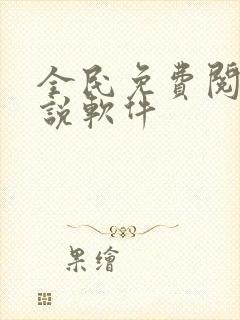 全民免費閱
說軟件
果繪